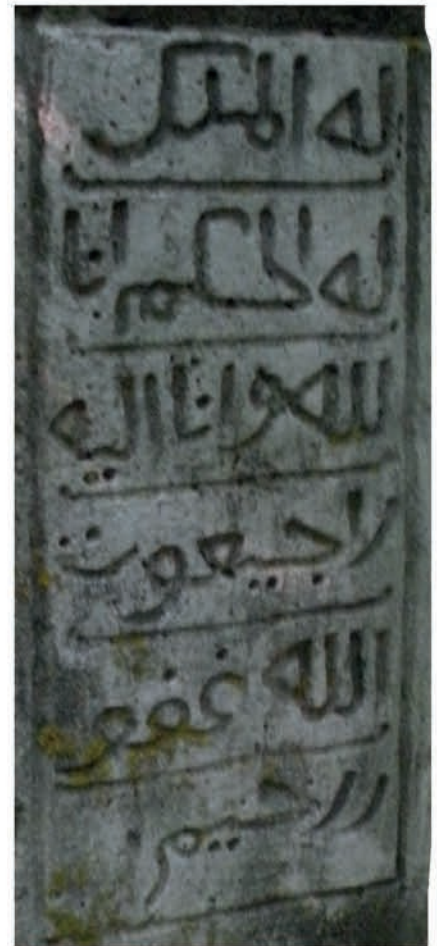 له الملك
له الحكم انا
لله وانا اليه
راجيعون
الله غفو
ررحيم